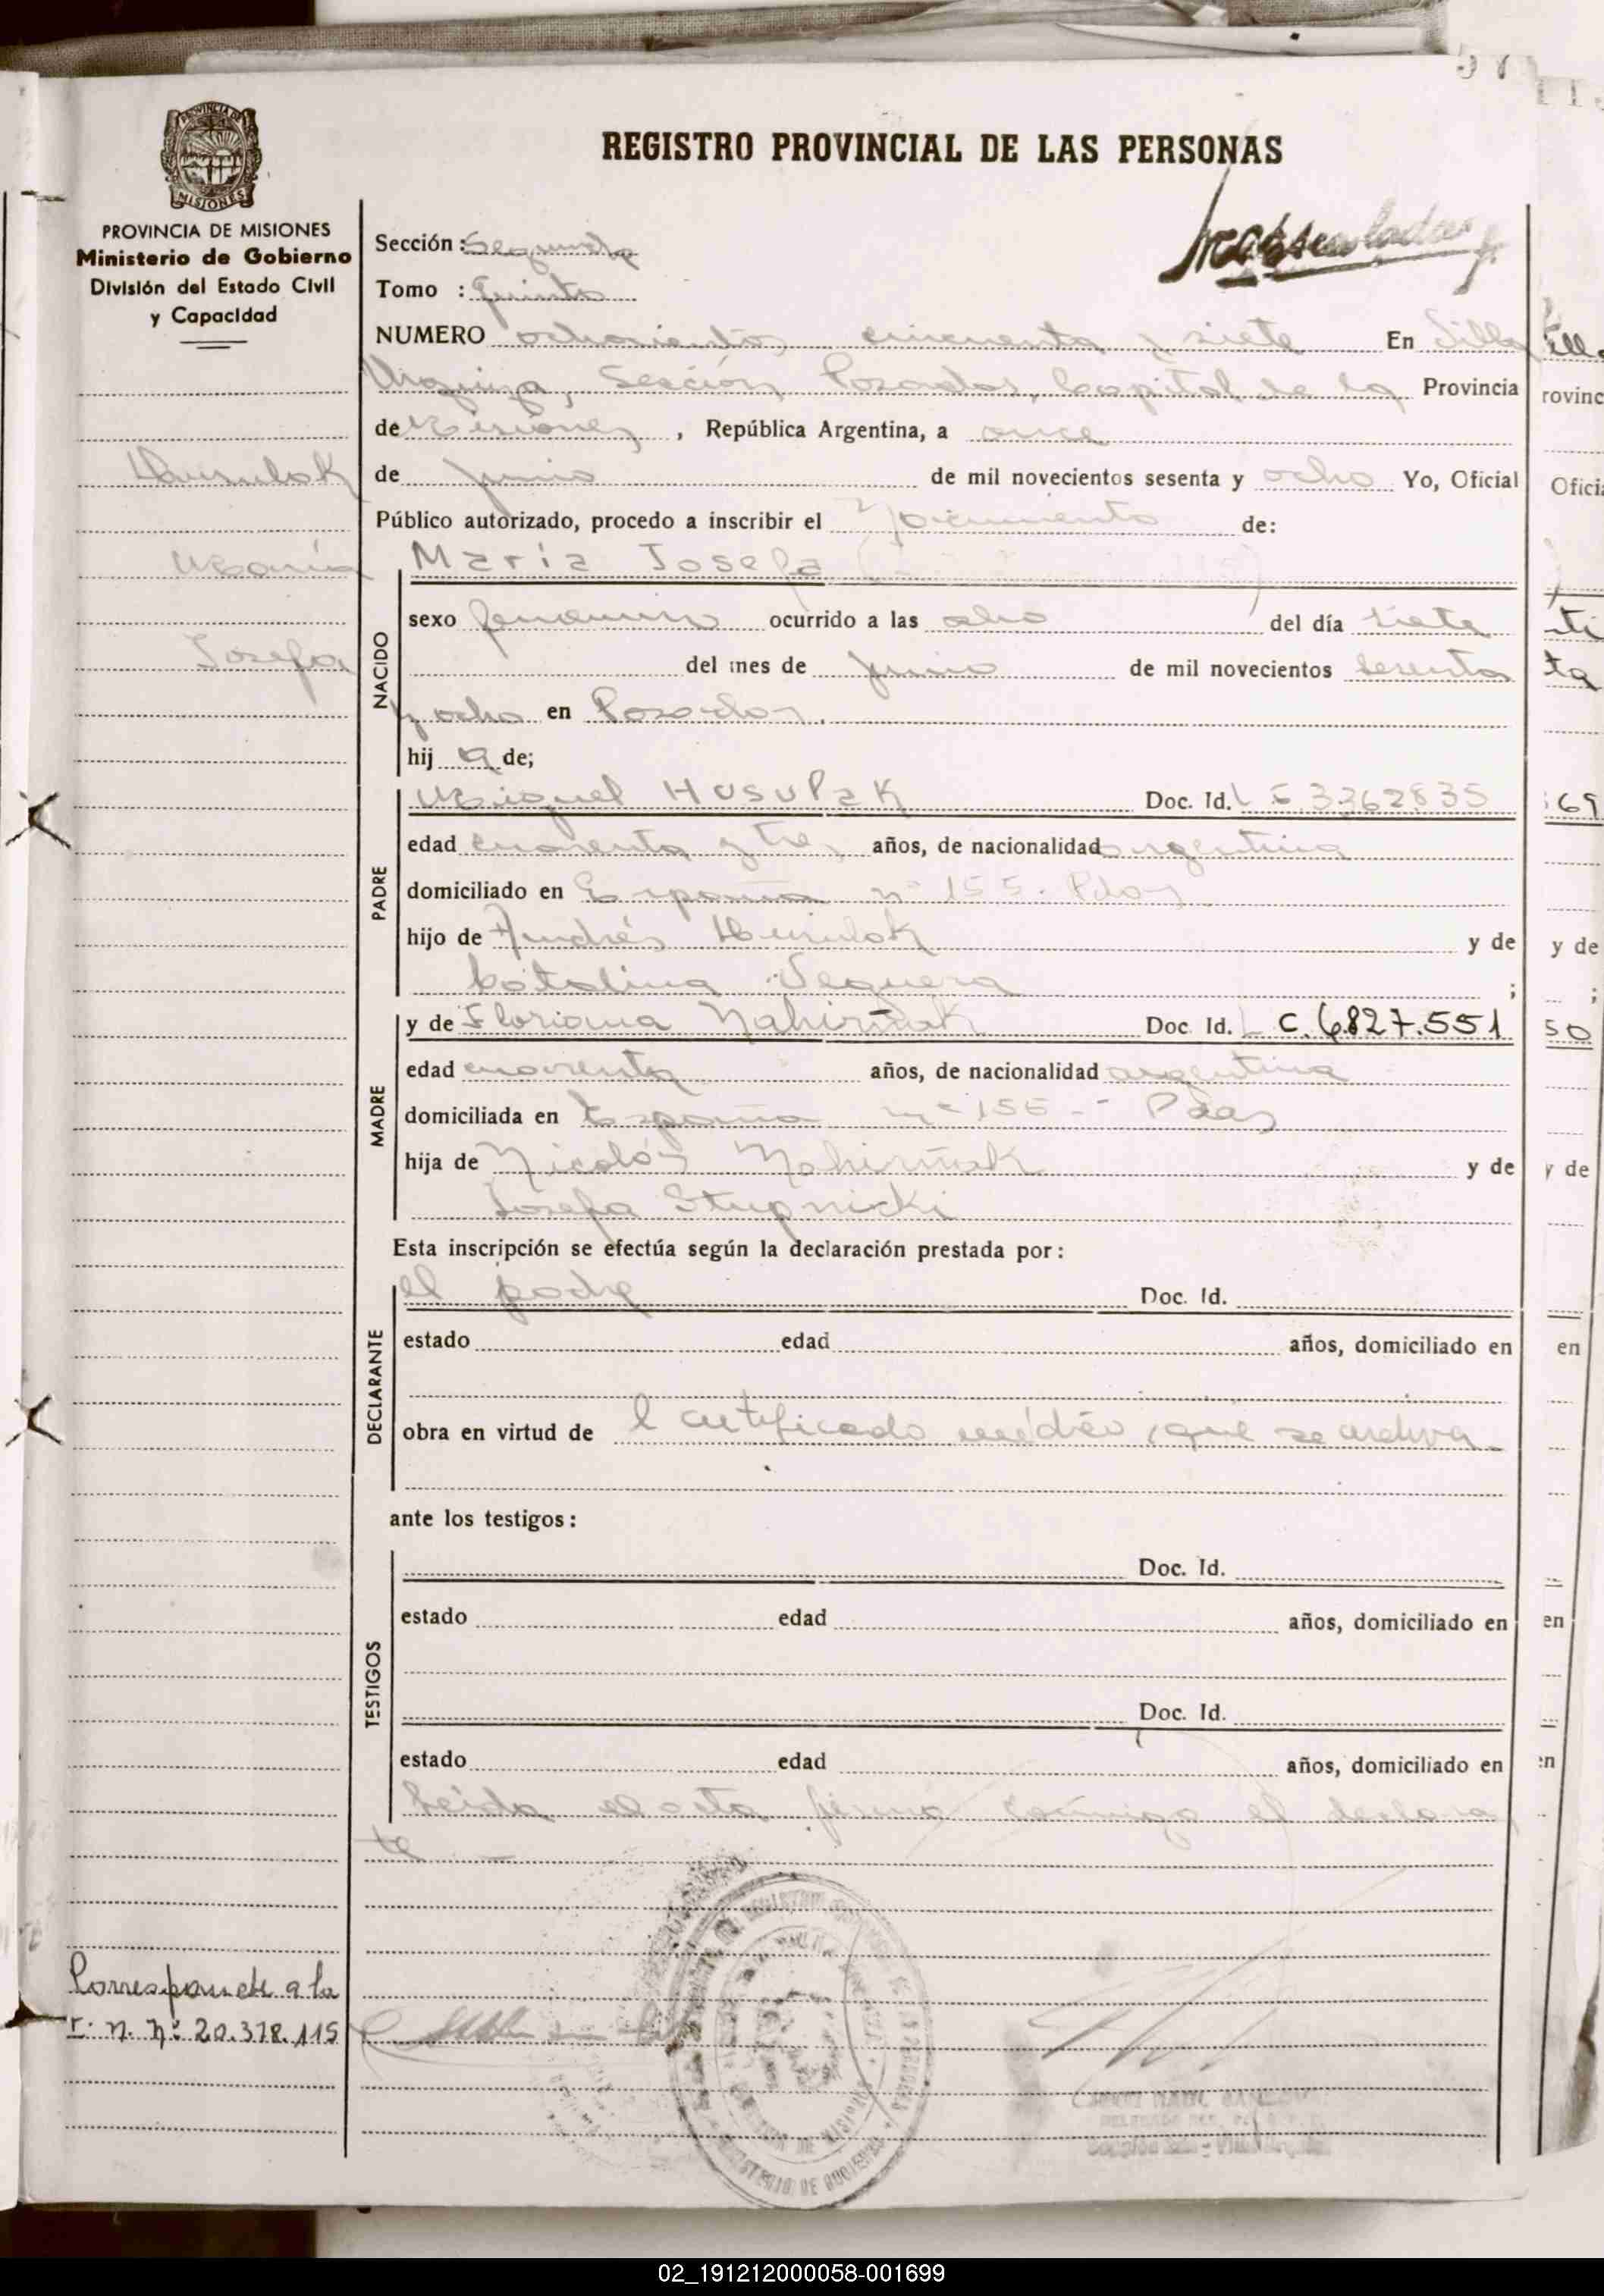 REGISTRO PROVINCIAL DE LAS PERSONAS
PROVINCIA DE MISIONES
Ministerio de Gobierno
División del Estado Civil
y Capacidad
Husulak
María
Josefa
Sección: Segunda
Tomo : Quinto
NUMERO ochocientos cincuenta y siete En Villa
Urquiza, Sección Posadas, Capital de la Provincia
de Misiones, República Argentina, a once
de junio de mil novecientos sesenta y ocho Yo, Oficial
Público autorizado, procedo a inscribir el Nacimiento de:
María Josefa
NACIDO
sexo femenino ocurrido a las ocho del día siete
del mes de junio de mil novecientos sesenta
y ocho en Posadas.
hij a de;
PADRE
Miguel Husulak Doc. Id. L E 3362835
edad cuarenta y tres años, de nacionalidad argentina
domiciliado en España nº 155. Pdas
hijo de Andrés Husulak y de
Catalina Seguera ;
MADRE
y de Floriana Nahirñak Doc. Id. L C. 6.827.551
edad cuarenta años, de nacionalidad argentina
domiciliada en España nº 155 - Pdas
hija de Nicolás Nahirñak y de
Josefa Stupnicki
Esta inscripción se efectúa según la declaración prestada por:
DECLARANTE
el padre Doc. Id.
estado edad años, domiciliado en
obra en virtud de l certificado médico, que se archiva
ante los testigos:
TESTIGOS
Doc. Id.
estado edad años, domiciliado en
Doc. Id.
estado edad años, domiciliado en
Leída el acta firma conmigo el declaran
te
Corresponde a la
r. n. nº 20.378.115
02_191212000058-001699